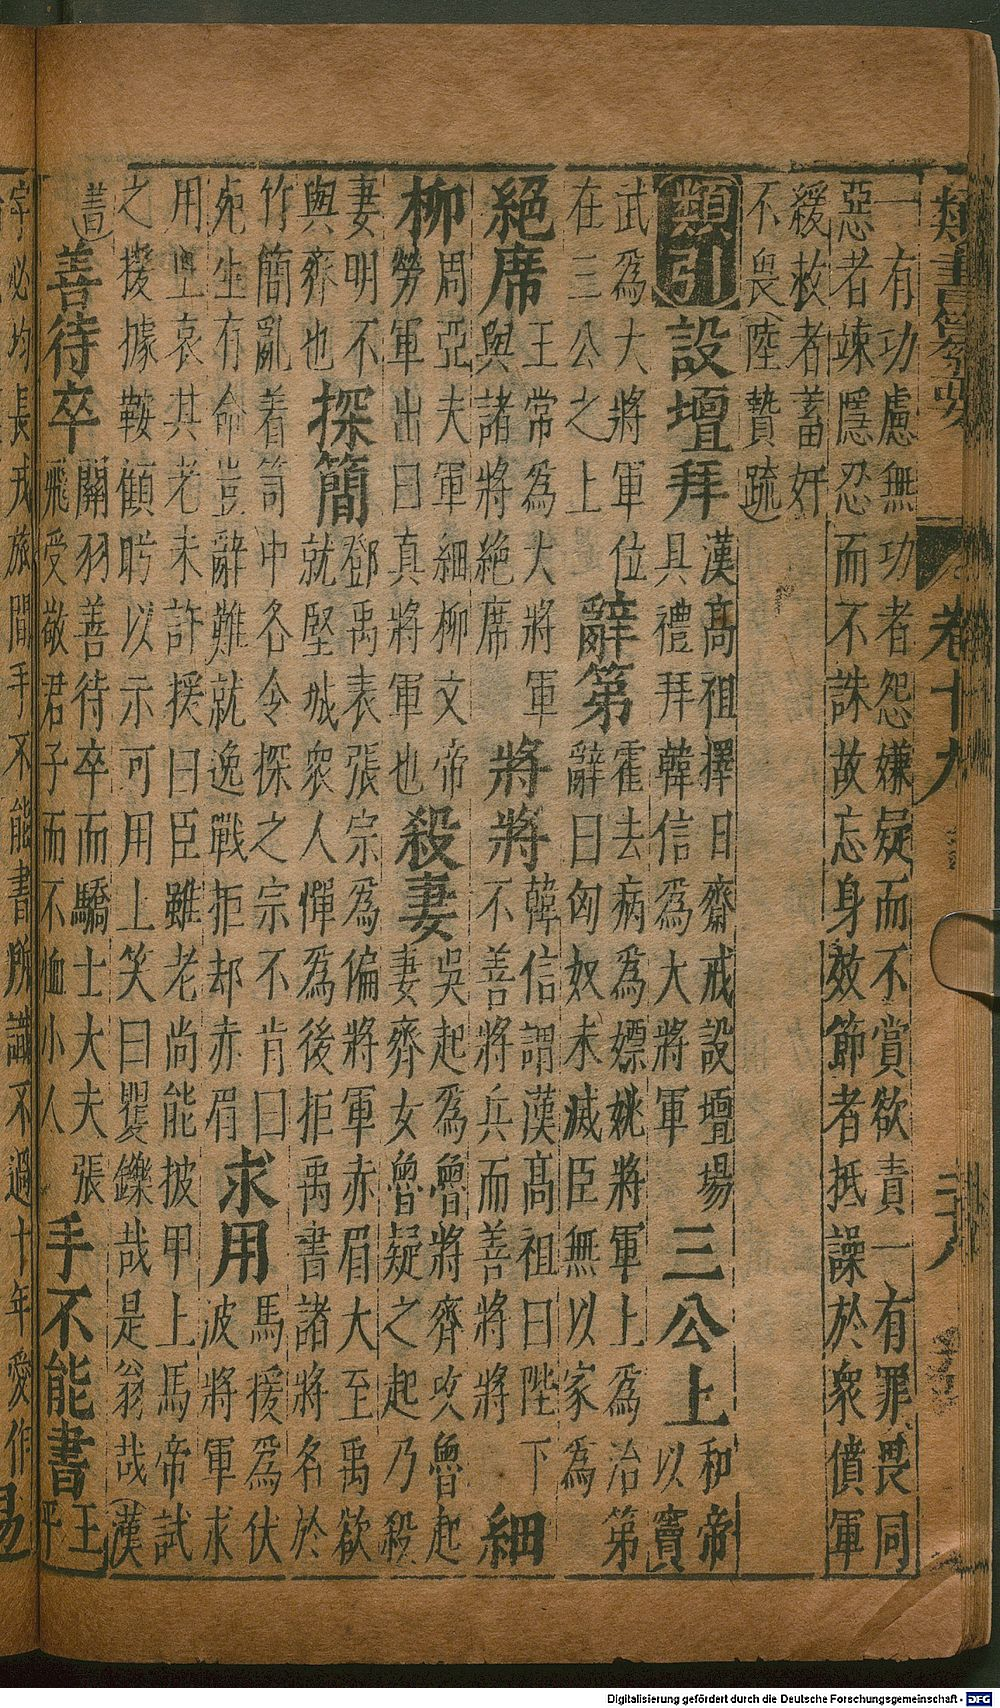 類書纂要 卷十九
一有功慮無功者怨嫌疑而不賞欲責一有罪畏同
惡者竦隱忍而不誅故忘身效節者抵譟於衆僨軍
緩救者蓄奸
不畏(陸贄疏)
類引
設壇拜
漢高祖擇日齋戒設壇場
具禮拜韓信為大將軍
三公上
和帝
以竇
武為大將軍位
在三公之上
辭第
霍去病為嫖姚將軍上為治第
辭曰匈奴未滅臣無以家為
絕席
王常為大將軍
與諸將絕席
將將
韓信謂漢高祖曰陛下
不善將兵而善將將
細
柳
周亞夫軍細柳文帝
勞軍出曰真將軍也
殺妻
吳起為魯將齊攻魯起
妻齊女魯疑之起乃殺
妻明不
與齊也
探簡
鄧禹表張宗為偏將軍赤眉大至禹欲
就堅城衆人憚為後拒禹書諸將名於
竹簡亂着笥中各令探之宗不肯曰
死生有命豈辭難就逸戰拒却赤眉
求用
馬援為伏
波將軍求
用上哀其老未許援曰臣雖老尚能披甲上馬帝試
之援據鞍顧眄以示可用上笑曰矍鑠哉是翁哉(漢
書)
善待卒
關羽善待卒而驕士大夫張
飛受敬君子而不恤小人
手不能書
王
平
長戎旅間手不能書所識不過十
Digitalisierung gefördert durch die Deutsche Forschungsgemeinschaft - DFG